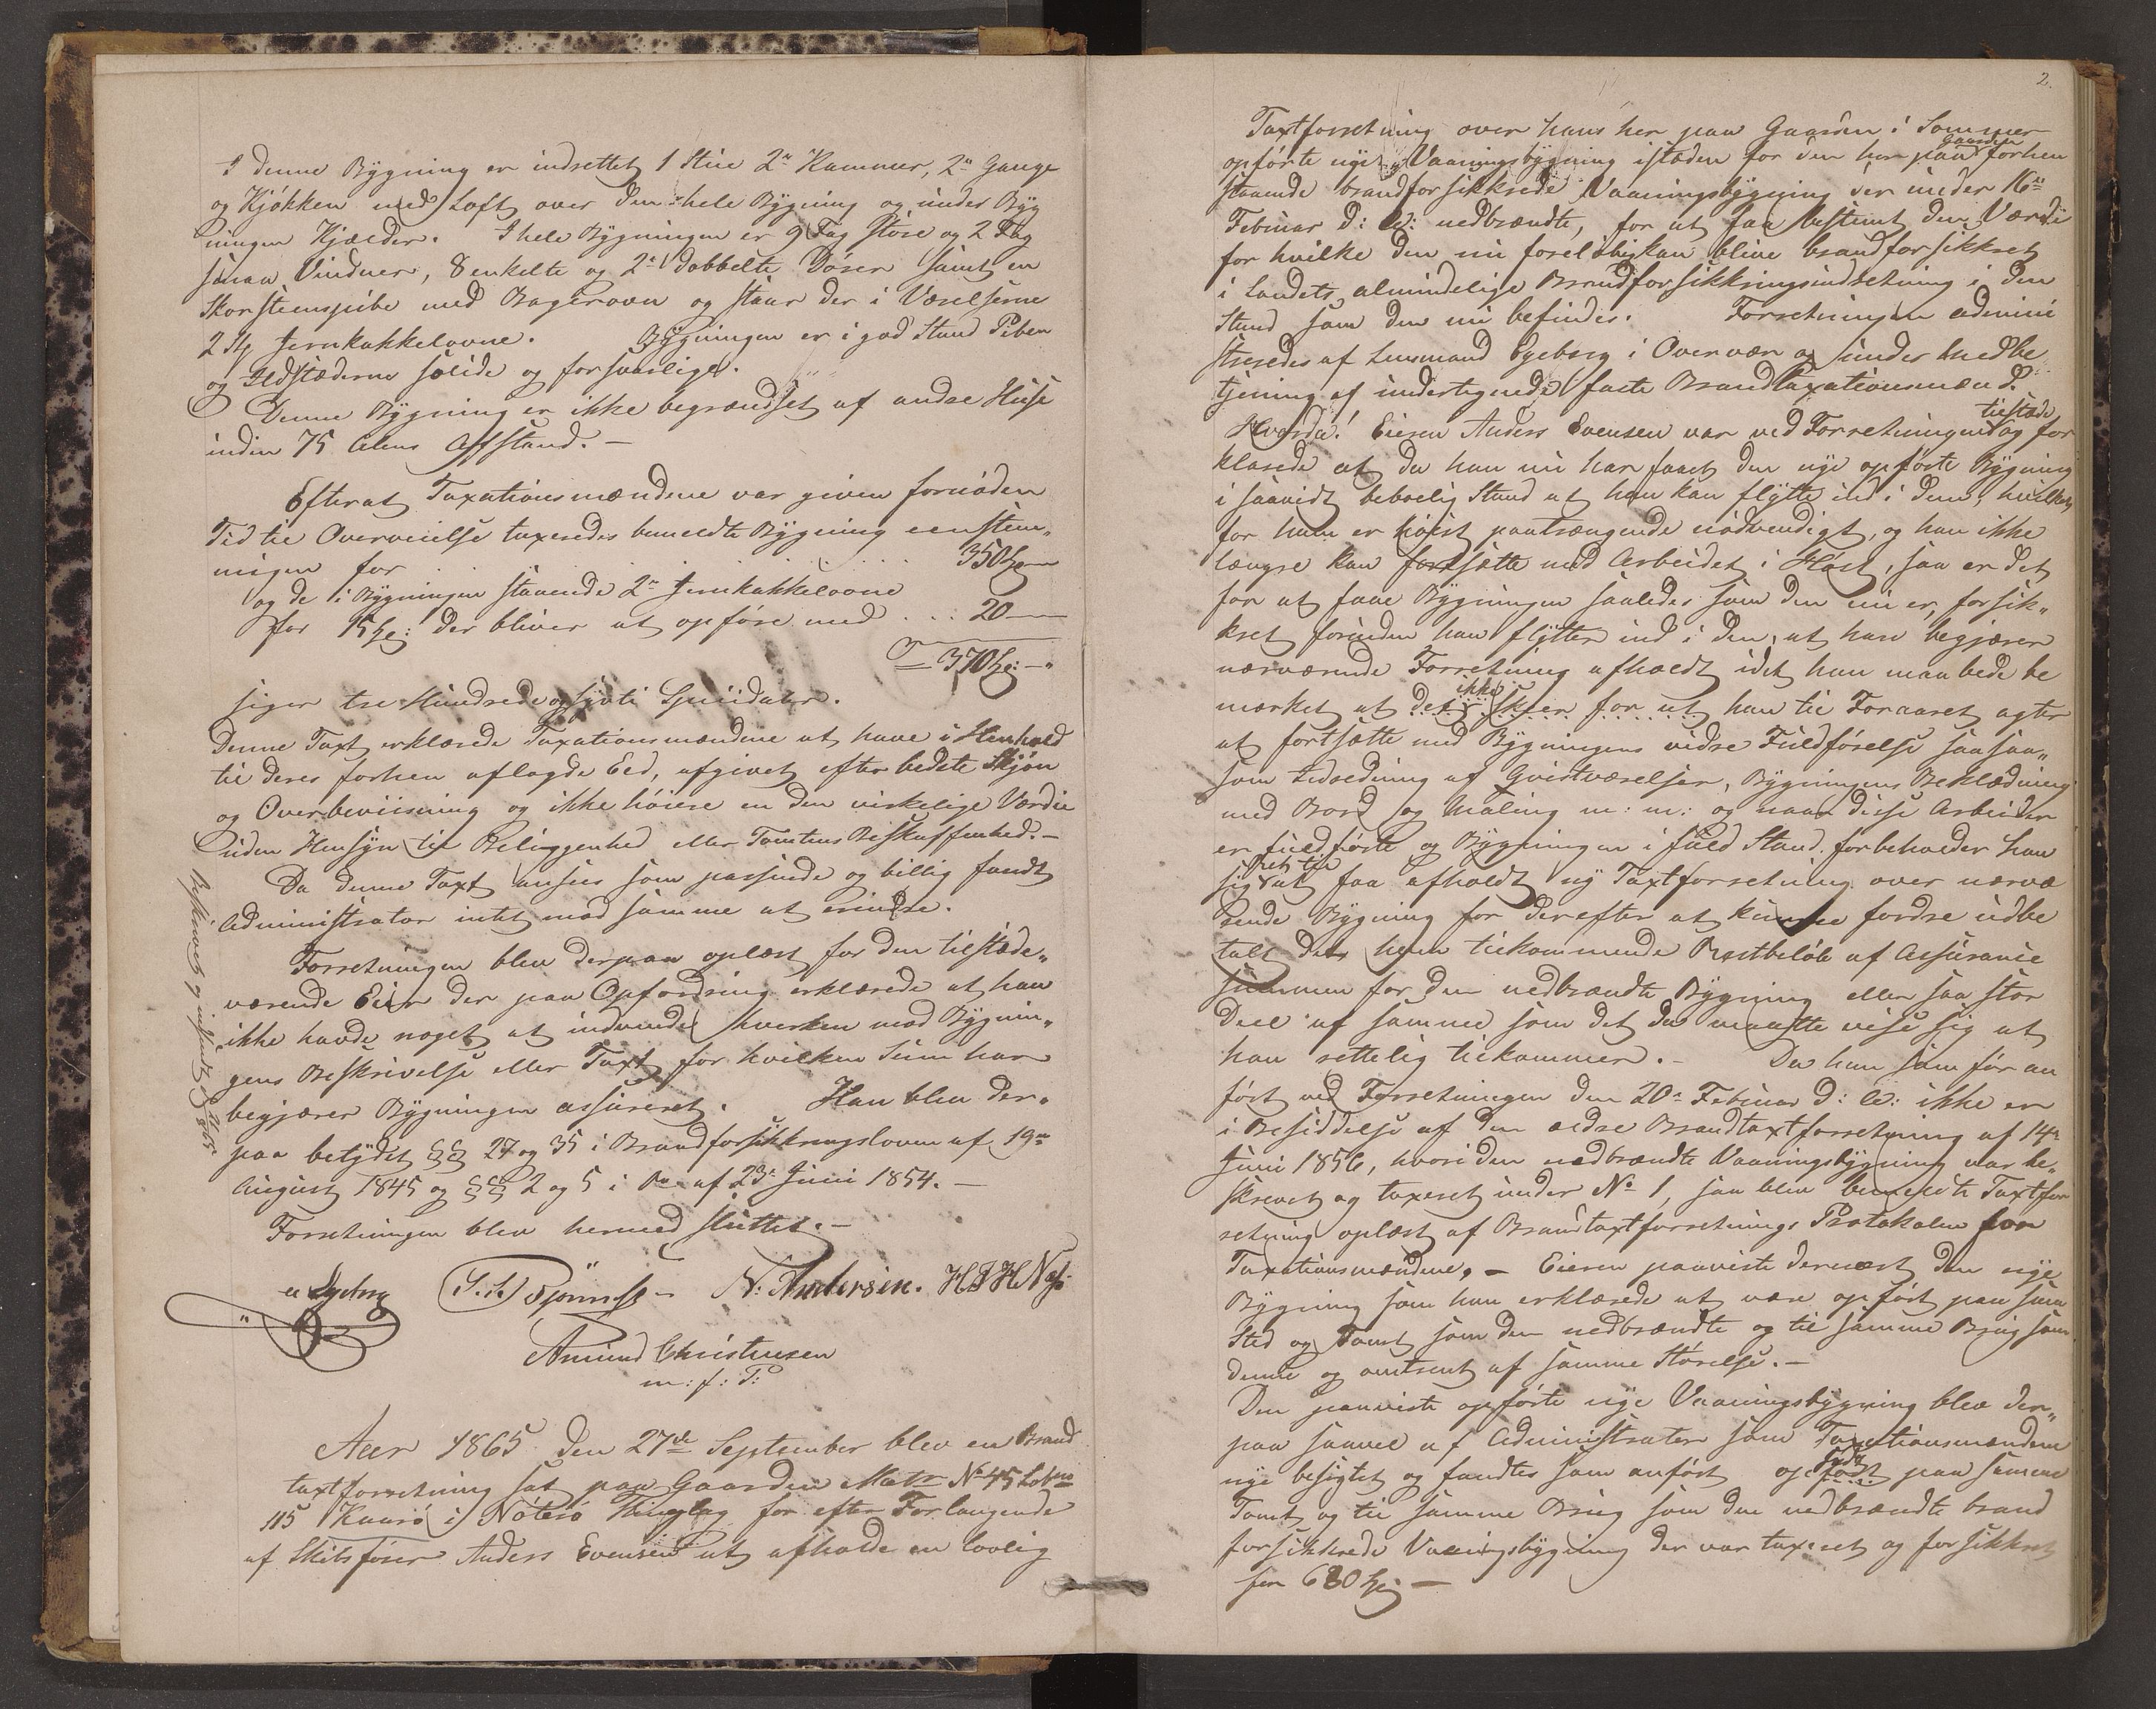 I denne Bygning er indrettet 1 Stue 2de Kammer, 2de Gange
og Kjøkken med Loft over den hele Bygning og under Byg
ningen Kjælder. I hele Bygningen er 9 Fag store og 2 Fag
smaa Vinduer, 8 enkelte og 2de dobbelte Dører samt en
Skorsteenspibe med Bagerovn og staar der i Værelserne
2 St. Jernkakkelovne. Bygningen er i god Stand Piben
og Ildstæderne solide og forsvarlige.
Denne Bygning er ikke begrændset af andre Huse
inden 75 Alens Affstand. —
Efterat Taxationsmændene var given fornøden
Tid til Overveielse taxeredes bemeldte Bygning eenstem„
migen for . . . . . . 350 Spd
og de i Bygningen staaende 2de Jernkakkelovne
for 15 Spd: der bliver at opføre med . . . 20 —
= 370 Spd: — "
siger tre Hundrede og sytti Speciedaler.
Denne Taxt erklærede Taxationsmændene at have i Henhold
til deres forhen aflagde Eed, afgivet efter bedste Skjøn
og Overbeviisning og ikke høiere en den virkelige Værdie
uden Hensyn til Beliggenhed eller Tomtens Beskaffenhed. —
Da denne Taxt ansees som passende og billig fandt
Administrator intet mod samme at erindre.
Forretningen blev derpaa oplæst for den tilstæde„
værende Eier der paa Opfordring erklærede at han
ikke havde noget at indvende hverken mod Bygnin„
gens Beskrivelse eller Taxt for hvilken Sum han
begjærer Bygningen assureret. Han blev der„
paa betydet §§ 27 og 35 i Brandforsikkringsloven af 19de
August 1845 og §§ 2 og 5 i Do af 23de Juni 1854. —
Forretningen blev hermed sluttet. —
Bygberg N: Andersen. H
Amund Christensen
m: f: P:
Beskrevet og indsendt 1865
Aar 1865 den 27de September blev en Brand
taxtforretning sat paa Gaarden Matr No 45 Løbno
115 Kaurø i Nøterø Thinglag for efter Forlangende
af Skibsfører Anders Evensen at afholde en lovlig
2.
Taxtforretning over hans her paa Gaarden i Sommer
opførte nye Vaaningsbygning istæden for den her paa Gaarden forhen
staaende brandforsikkrede Vaaningsbygning der under 16de
Februar d: A: nedbrændte, for at faa bestemt den Værdi
for hvilke den nu foreløbig kan blive brandforsikkret
i Landets almindelige Brandforsikkringsindretning i den
Stand som den nu befindes. Forretningen admini
streredes af Lensmand Bygberg i Overvær og under Medbe
tjening af undertegnede faste Brandtaxationsmænd.
Hvorda! Eieren Anders Evensen var ved Forretningen tilstæde og for
klarede at da han nu har faaet den nye opførte Bygning
i saavidt beboelig Stand at han kan flytte ind i den, hvilket
for ham er høist paatrængende nødvendigt, og han ikke
længre kan fortsætte med Arbeidet i Høst, saa er det
for at faae Bygningen saaledes som den nu er, forsik„
kret forinden han flytter ind i den, at han begjærer
nærværende Forretning afholdt idet han maa bede be
mærket at det ikke skjer for at han til Foraaret agter
at fortsætte med Bygningens vidre Fuldførelse saasaa„
som Indredning af Qvistværelser, Bygningens Beklædning
med Bord og Maling m: m: og naar disse Arbeider
er fuldførte og Bygningen i fuld Stand forbeholder han
sig Ret til at faa afholdt ny Taxtforretning over nærvæ
rende Bygning for derefter at kunne fordre udbe
talt det ham tilkommende Restbeløb af Assurance
summen for den nedbrændte Bygning eller saa stor
Deel af samme som det da maatte vise sig at
han rettelig tilkommer. — Da han som før an
ført ved Forretningen den 20de Februar d: A: ikke er
i Besiddelse af den ældre Brandtaxtforretning af 14de
Juni 1856, hvori den nedbrændte Vaaningsbygning var be„
skrevet og taxeret under No 1, saa blev bemeldte Taxtfor
retning oplæst af Brandtaxtforretnings Protokolen for
Taxationsmændene. — Eieren paaviste dernæst den nye
Bygning som han erklærede at være opført paa sam
Sted og Tomt som den nedbrændte og til samme Brug som
denne og omtrent af samme Størelse. —
Den paaviste opførte nye Vaaningsbygning blev der„
paa saavel af Administrator som Taxationsmændene
nye besigtet og fandtes som anført opført paa samme
Tomt og til samme Brug som den nedbrændte brand
forsikkrede Vaaningsbygning der var taxeret og forsikkret
for 680 Spd —